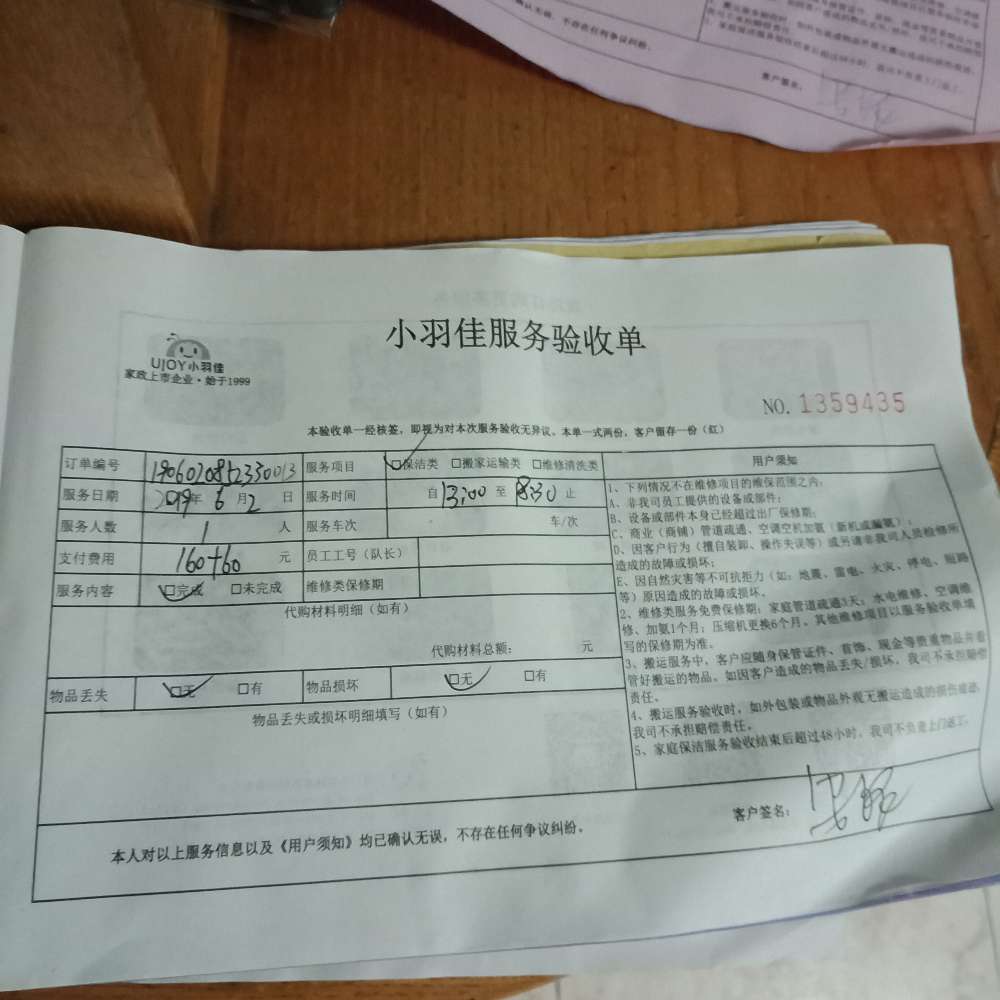 确认无误，不存在任何争议纠纷。
客户签名：
小羽佳服务验收单
UJOY小羽佳
家政上市企业·始于1999
NO. 1359435
本验收单一经核签，即视为对本次服务验收无异议。本单一式两份，客户留存一份（红）
订单编号 服务项目 □保洁类 □搬家运输类 □维修清洗类 用户须知
服务日期 2019年 6月2日 服务时间 自13:00至 18:30止
服务人数 1 人 服务车次 车/次
支付费用 160+60 元 员工工号（队长）
服务内容 □完成 □未完成 维修类保修期
代购材料明细（如有）
代购材料总额： 元
物品丢失 □无 □有 物品损坏 □无 □有
物品丢失或损坏明细填写（如有）
1、下列情况不在维修项目的维保范围之内：
A、非我司员工提供的设备或部件；
B、设备或部件本身已经超过出厂保修期；
C、商业（商铺）管道疏通、空调空机加氨（新机或漏氨）；
D、因客户行为（擅自装卸、操作失误等）或另请非我司人员检修所
造成的故障或损坏；
E、因自然灾害等不可抗拒力（如：地震、雷电、火灾、停电、短路
等）原因造成的故障或损坏。
2、维修类服务免费保修期：家庭管道疏通3天；水电维修、空调维
修、加氨1个月；压缩机更换6个月。其他维修项目以服务验收单填
写的保修期为准。
3、搬运服务中，客户应随身保管证件、首饰、现金等贵重物品并看
管好搬运的物品。如因客户造成的物品丢失/损坏，我司不承担赔偿
责任。
4、搬运服务验收时，如外包装或物品外观无搬运造成的损伤痕迹，
我司不承担赔偿责任。
5、家庭保洁服务验收结束后超过48小时，我司不负责上门返工。
客户签名：
本人对以上服务信息以及《用户须知》均已确认无误，不存在任何争议纠纷。